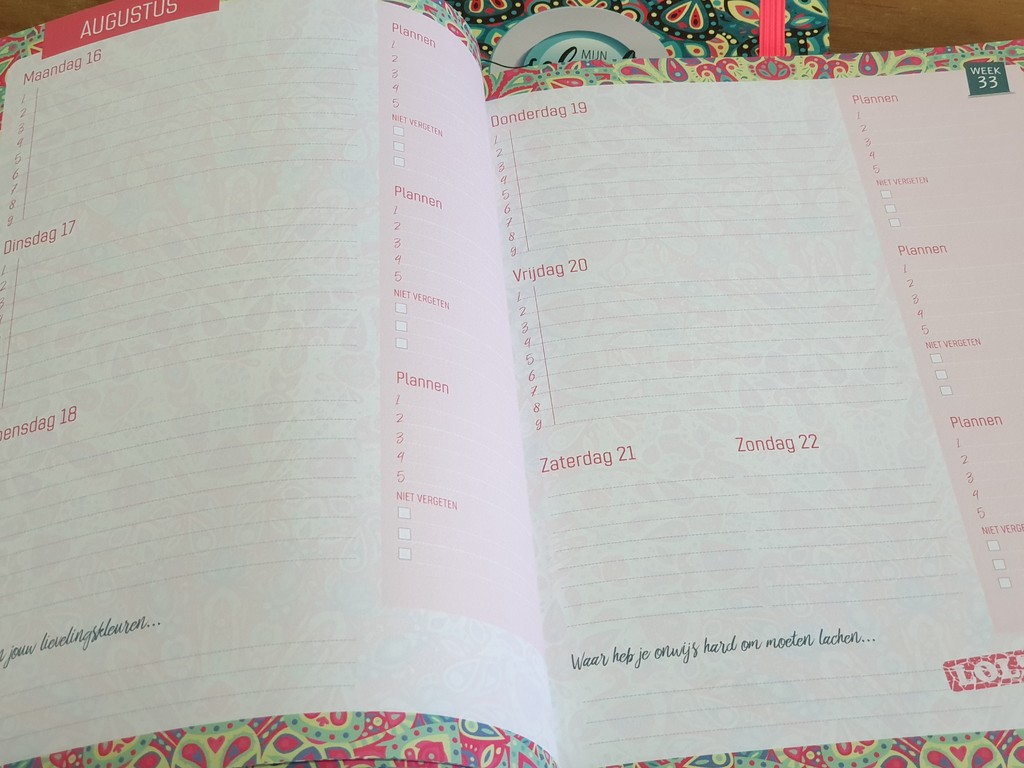 AUGUSTUS
Maandag 16
1
2
3
4
5
6
7
8
9
Plannen
1
2
3
4
5
NIET VERGETEN
Dinsdag 17
1
2
3
4
Plannen
1
2
3
4
5
NIET VERGETEN
18
Plannen
1
2
3
4
5
NIET VERGETEN
jouw lievelingskleuren...
MIJN
WEEK
33
Donderdag 19
1
2
3
4
5
6
7
8
9
Plannen
1
2
3
4
5
NIET VERGETEN
Vrijdag 20
1
2
3
4
5
6
7
8
9
Plannen
1
2
3
4
5
NIET VERGETEN
Zaterdag 21
Zondag 22
Plannen
1
2
3
4
5
NIET
Waar heb je onwijs hard om moeten lachen...